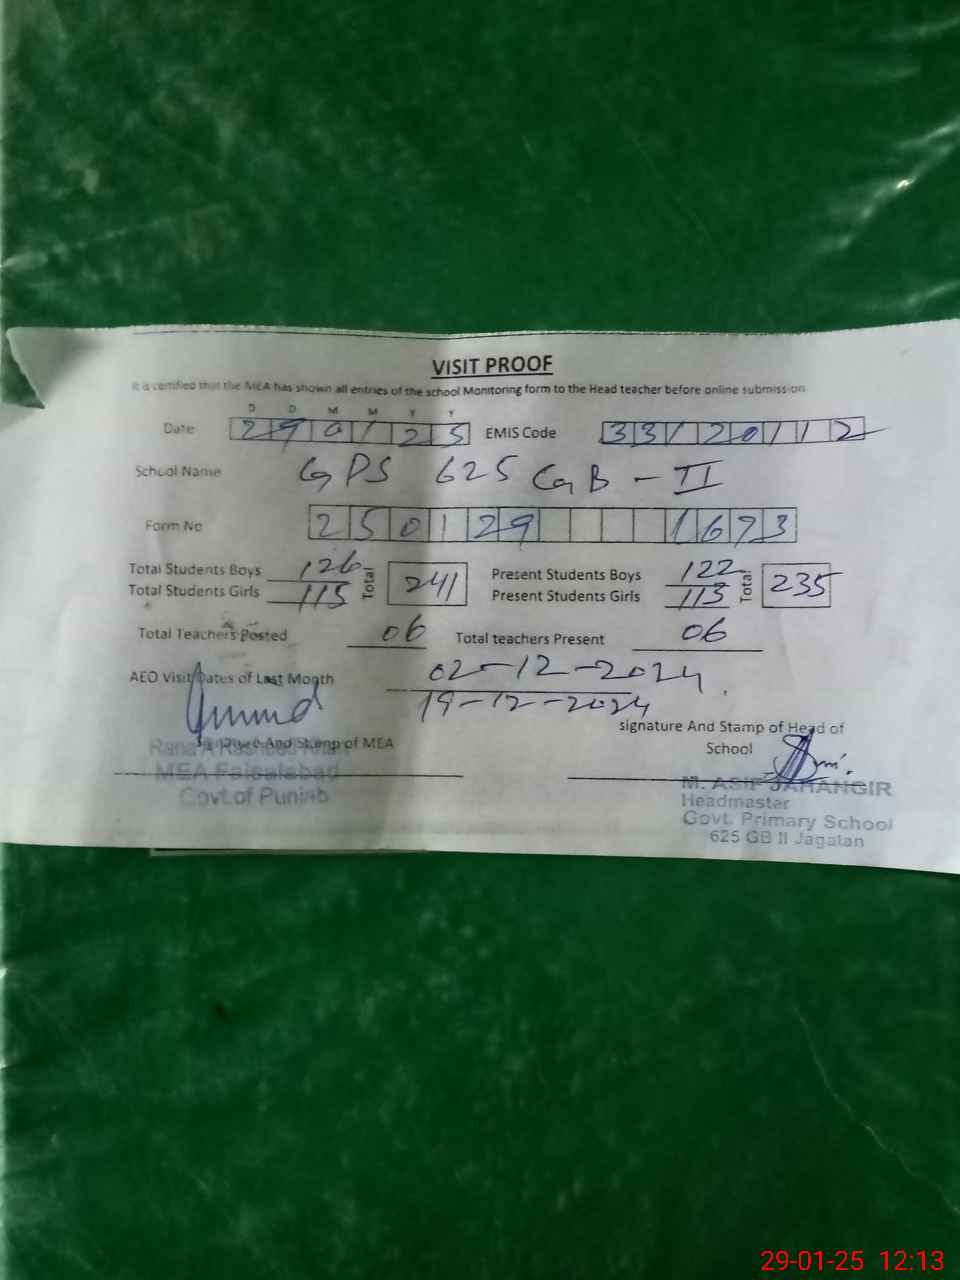 VISIT PROOF
It is certified that the MEA has shown all entries of the school Monitoring form to the Head teacher before online submission
D D M M Y Y
Date 29 01 25 EMIS Code 33120112
School Name GPS 625 GB - II
Form No 250129 1673
Total Students Boys 126 Total 241 Present Students Boys 122 Total 235
Total Students Girls 115 Present Students Girls 113
Total Teachers Posted 06 Total teachers Present 06
AEO Visit Dates of Last Month 02-12-2024
19-12-2024
signature And Stamp of Head of
School
Signature And Stamp of MEA
Rana
MEA Faisalabad
Govt.of Punjab
M. ASIF JAHANGIR
Headmaster
Govt. Primary School
625 GB II Jagatan
29-01-25 12:13